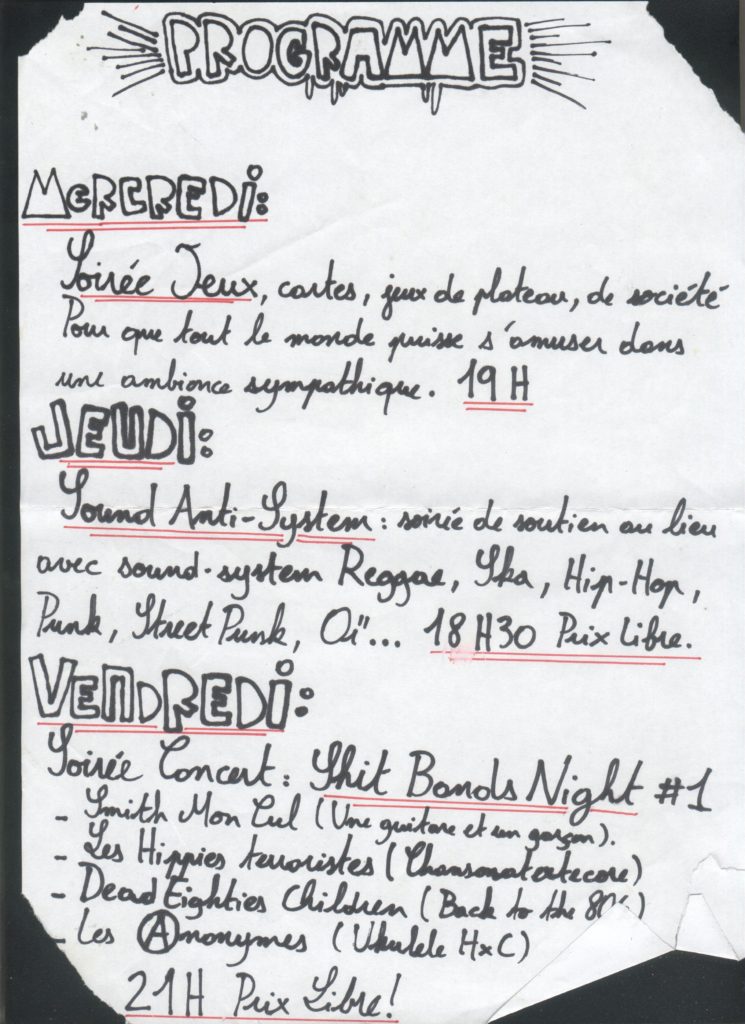 PROGRAMME
MERCREDi:
Soirée Jeux, cartes, jeux de plateau, de société
Pour que tout le monde puisse s'amuser dans
une ambiance sympathique. 19H
JEUDi:
Sound Anti-System : soirée de soutien au lieu
avec sound-system Reggae, Ska, Hip-Hop,
Punk, Street Punk, Oi"... 18H30 Prix Libre.
VENDREDi:
Soirée Concert : Shit Bands Night #1
- Smith Mon Cul (Une guitare et un garçon).
- Les Hippies terroristes (Chansonatextecore)
- Dead Eighties Children (Back to the 80's)
- Les Anonymes (Ukulele HxC)
21H Prix Libre!